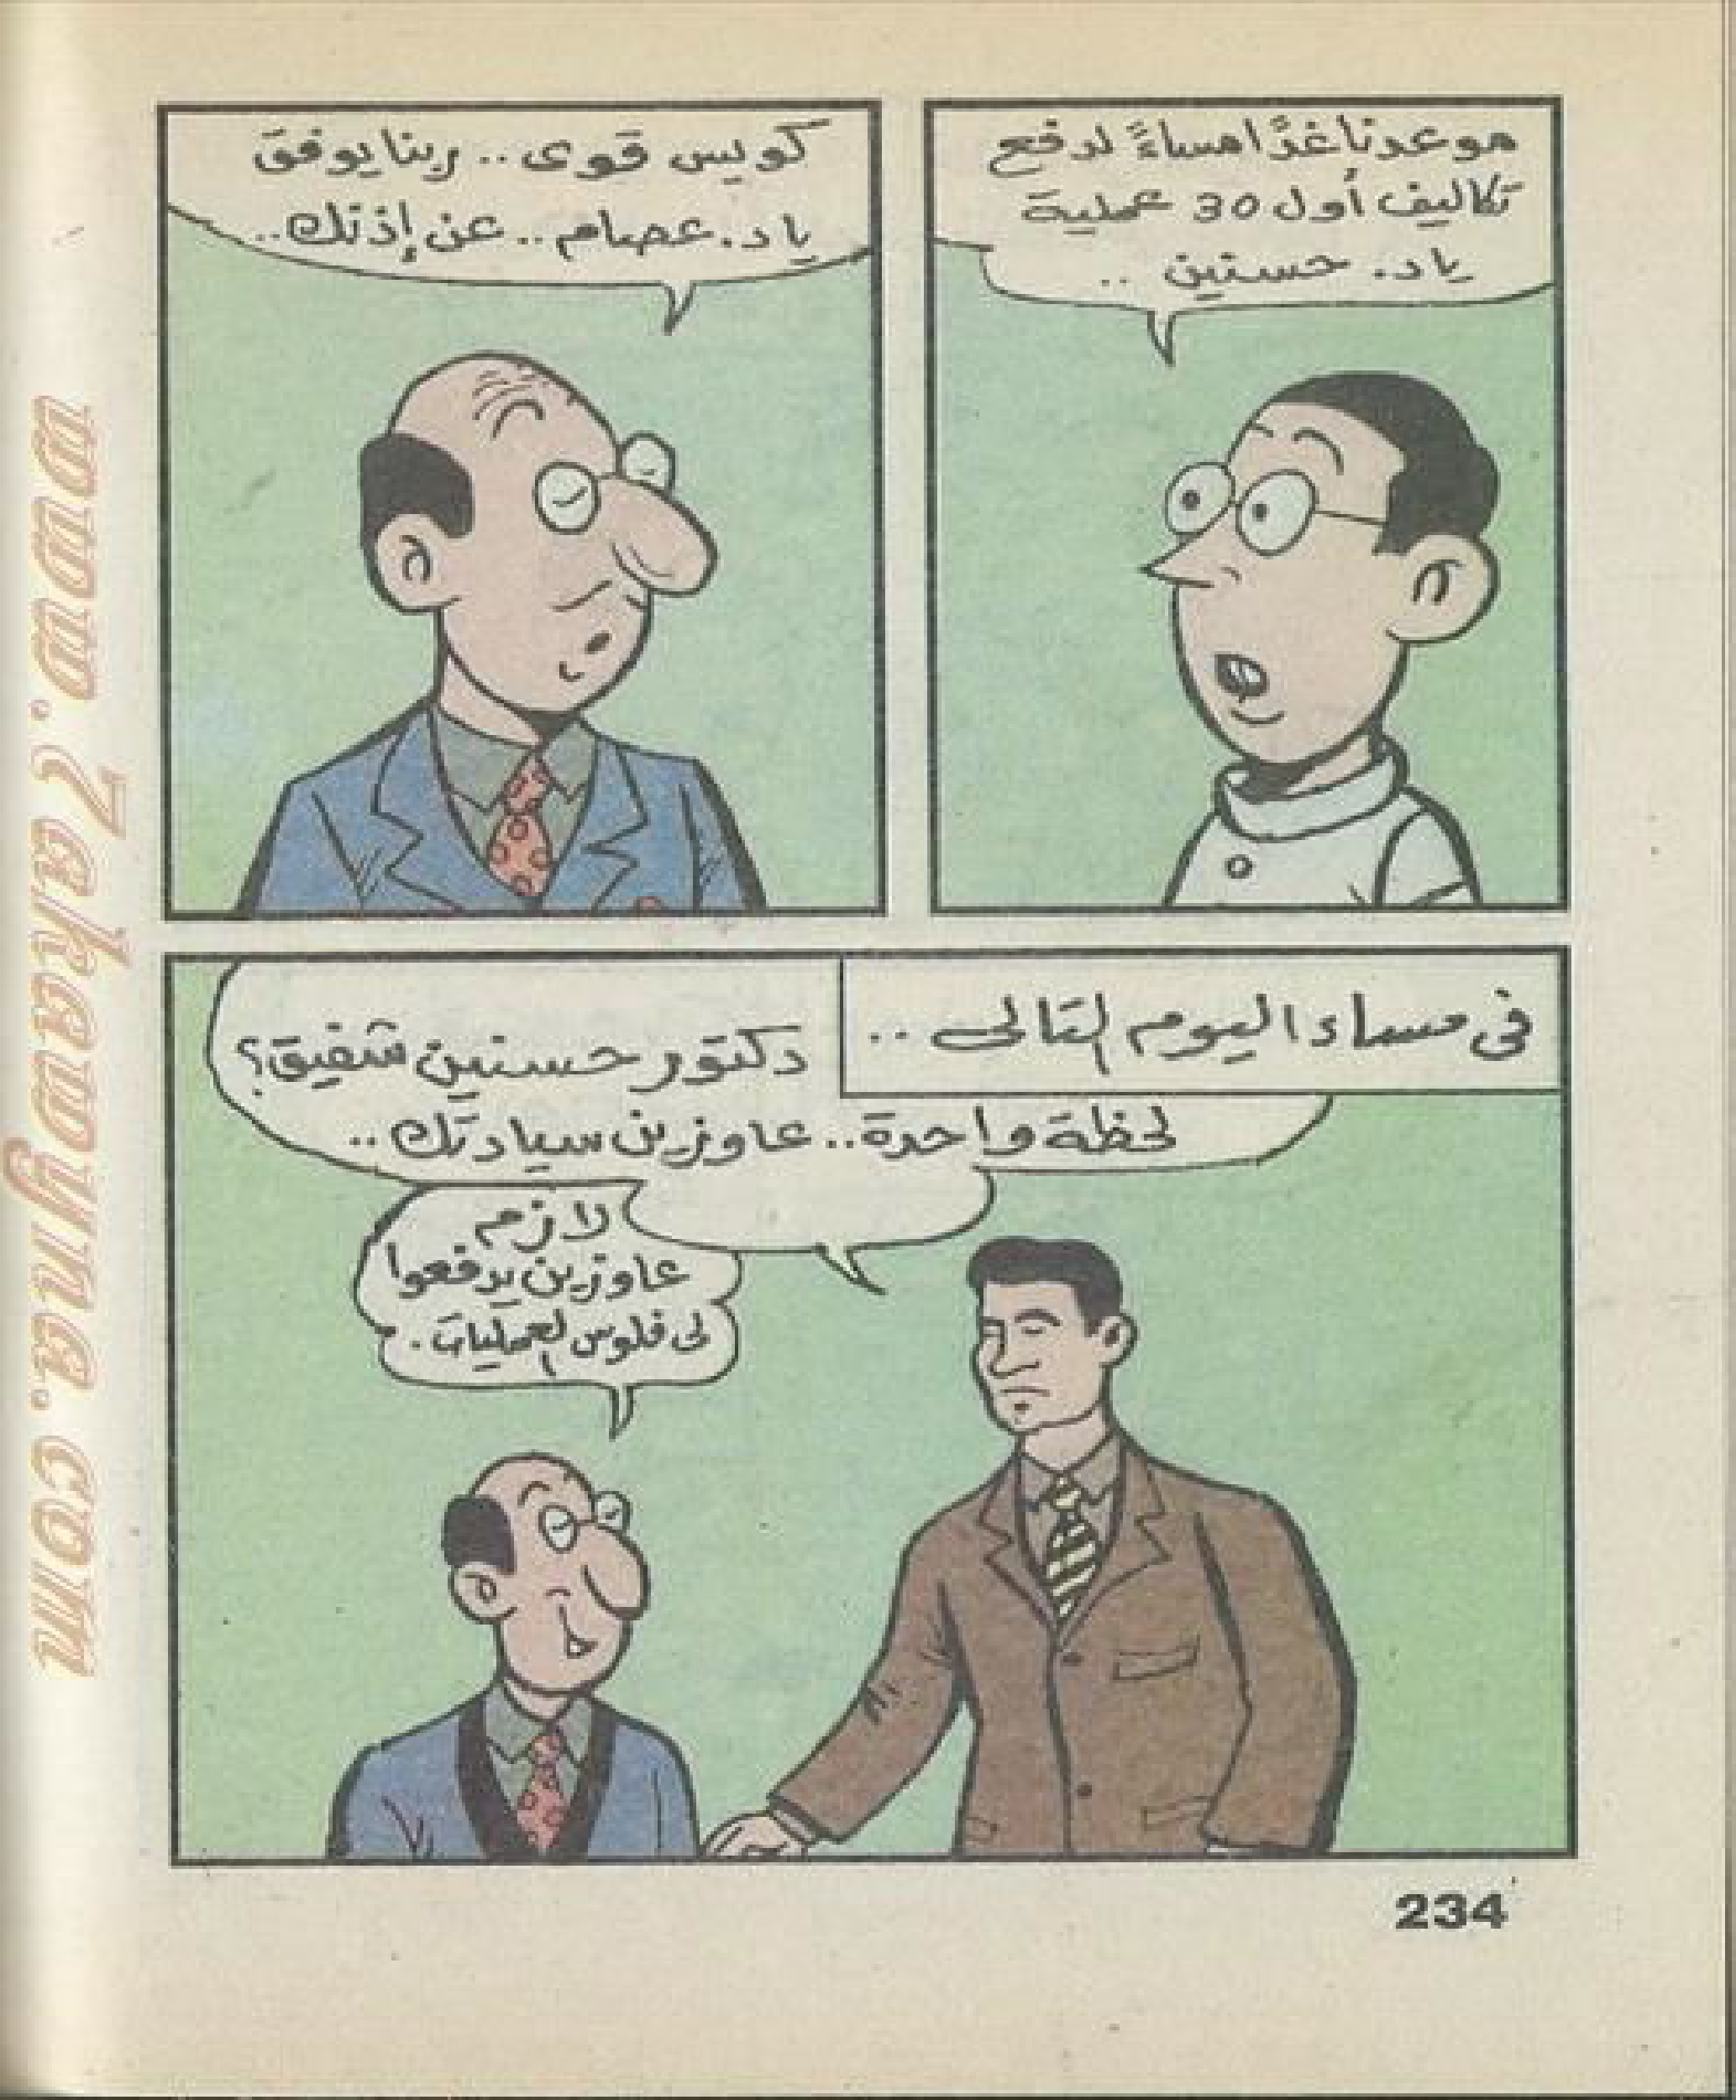 موعدنا غدًا مساءً لدفع
تكاليف أول 30 عملية
يا د. حسنين ..
كويس قوى .. ربنا يوفق
يا د. عصام .. عن إذنك ..
فى مساء اليوم التالى ..
دكتور حسنين شفيق؟
لحظة واحدة .. عاوزين سيادتك ..
لازم
عاوزين يدفعوا
لى فلوس العمليات .
234
www.7akawyna.com